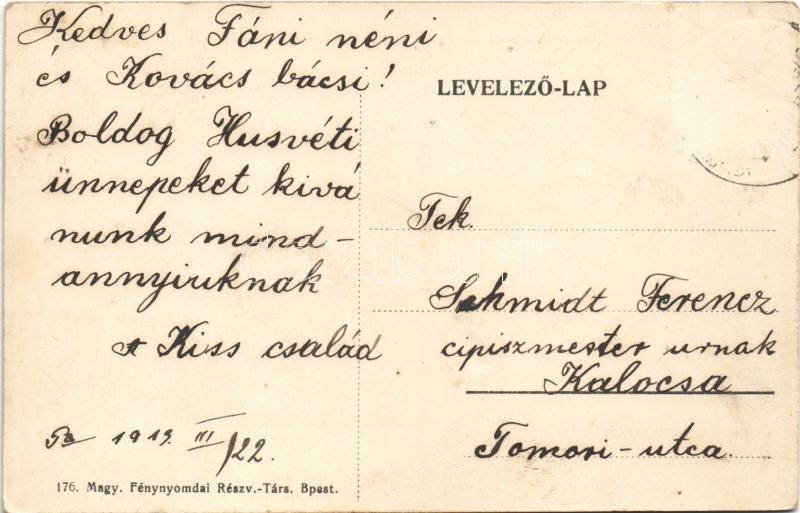 Kedves Fáni néni
és Kovács bácsi!
Boldog Husvéti
ünnepeket kivá
nunk mind-
annyiuknak
A Kiss család
1913. III/22.
176. Magy. Fénynyomdai Részv.-Társ. Bpest.
LEVELEZŐ-LAP
Tek.
Schmidt Ferencz
cipiszmester urnak
Kalocsa
Tomori-utca.
darabanth